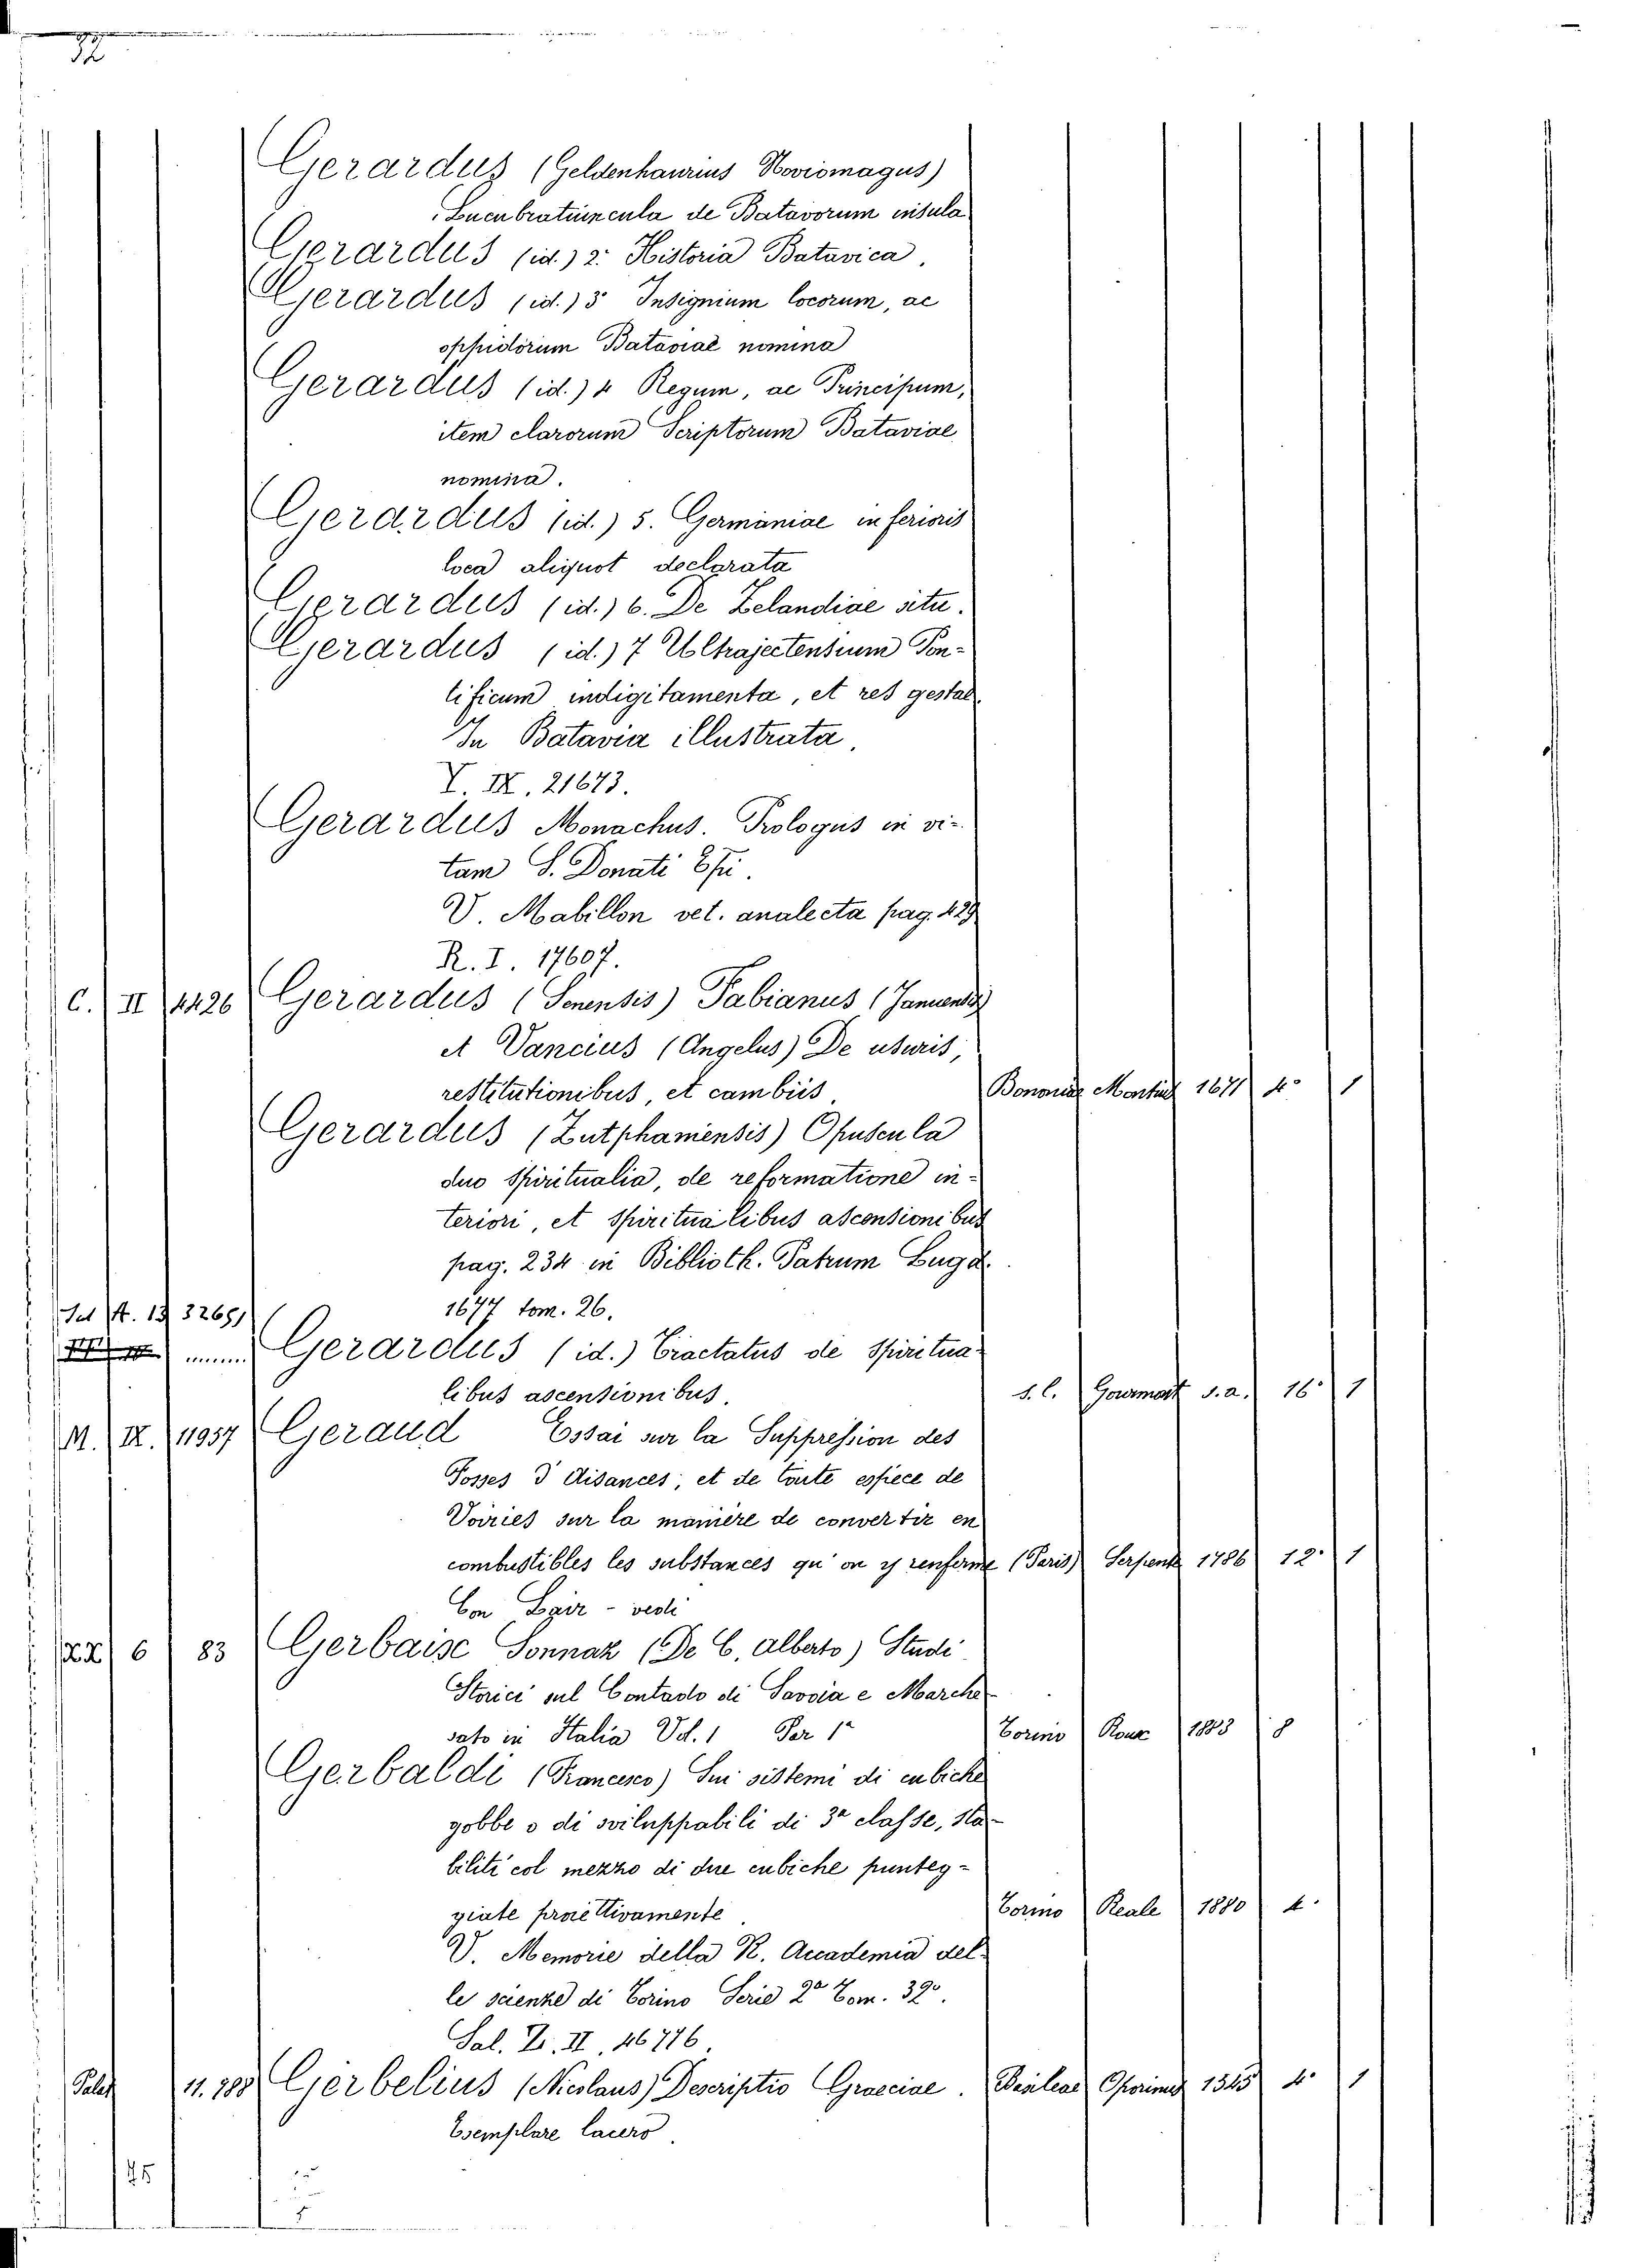 32
Gerardus (Geldenhaurius Noviomagus)
Lucubratiuncula de Batavorum insula
Gerardus (id.) 2. Historia Batavica.
Gerardus (id.) 3 Insignium locorum, ac
oppidorum Bataviae nomina
Gerardus (id.) 4 Regum, ac Principum,
item clarorum Scriptorum Bataviae
nomina.
Gerardus (id.) 5. Germaniae inferioris
loca aliquot declarata
Gerardus (id.) 6. De Zelandiae situ.
Gerardus (id.) 7 Ultrajectensium Pon-
tificum indigitamenta, et res gestae
In Batavia illustrata.
V. IX. 21673.
Gerardus Monachus. Prologus in vi-
tam S. Donati Epi.
V. Mabillon vet. analecta pag. 429
R. I. 17607.
C. II 4426 Gerardus (Senensis) Fabianus
et Vancius (Angelus) De usuris,
restitutionibus, et cambiis. Bononiae 1671 4° 1
Gerardus (Zutphaniensis) Opuscula
duo Spiritualia, de reformatione in-
teriori, et Spiritualibus ascensionibus
pag. 234 in Biblioth. Patrum Lugd.
1677 tom. 26.
A. 13 32651
Gerardus (id.) Tractatus de Spiritua-
libus ascensionibus. s. l. Gourmont s. a. 16° 1
M. IX. 11957 Geraud Essai sur la Suppression des
Fosses d'Aisances, et de toute espece de
Voiries sur la manière de convertir en
combustibles les substances qu'on y renferme (Paris) Serpente 1786 12° 1
Con Lair - vedi
6 83 Gerbaise Sonnaz (De C. Alberto) Studi
Storici sul Contado di Savoia e Marche-
sato in Italia Vol. 1 Par 1ª Torino Roux 1883 8
Gerbaldi (Francesco) Sui sistemi di cubiche
gobbe o di sviluppabili di 3ª classe, sta-
biliti col mezzo di due cubiche punteg-
giate proiettivamente. Torino Reale 1880 4°
V. Memorie della R. Accademia del-
le scienze di Torino Serie 2ª Tom. 32°.
Sal. Z. II. 46776.
11. 188 Gerbelius (Nicolaus) Descriptio Graeciae. Basileae Oporinus 1545 4° 1
Esemplare lacero.